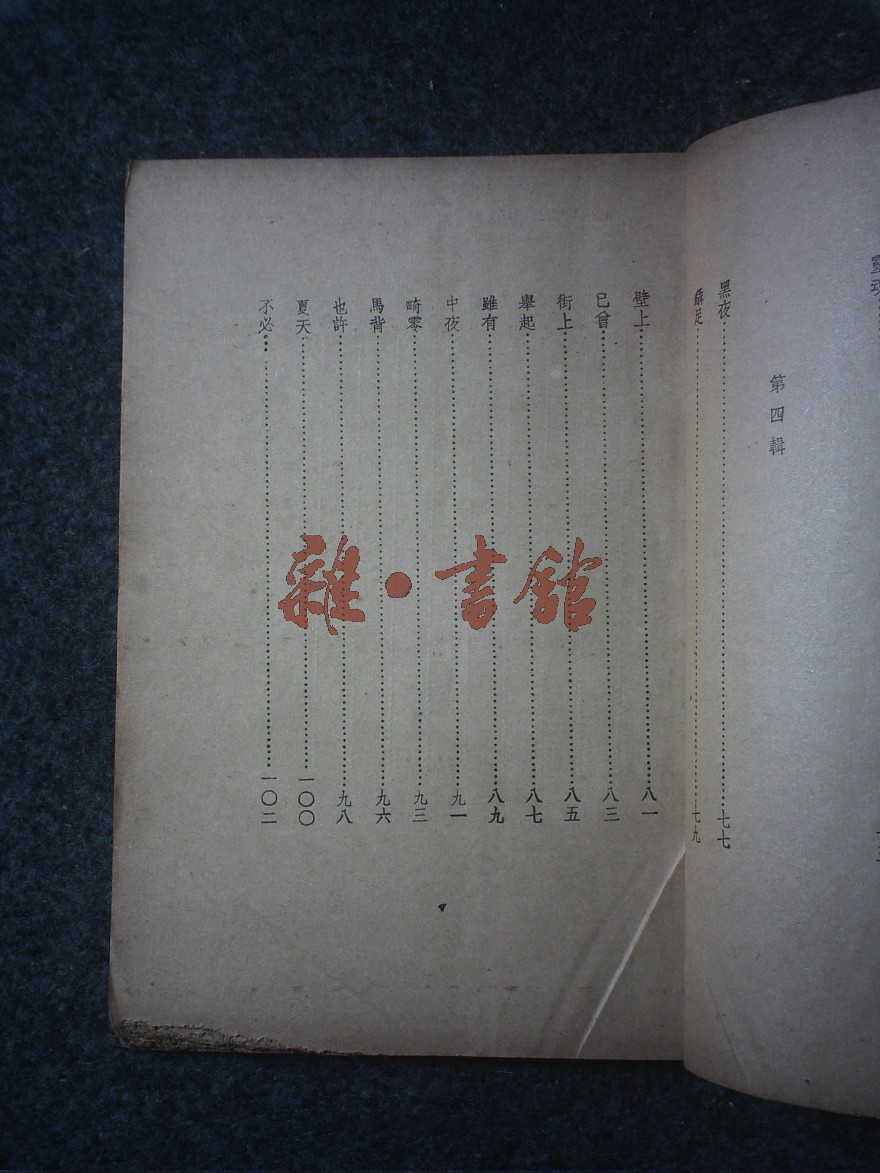 第四輯
黑夜……七七
……七九
壁上……八一
已曾……八三
街上……八五
舉起……八七
雖有……八九
中夜……九一
畸零……九三
馬背……九六
也許……九八
夏天……一〇〇
不必……一〇二
雜·書館